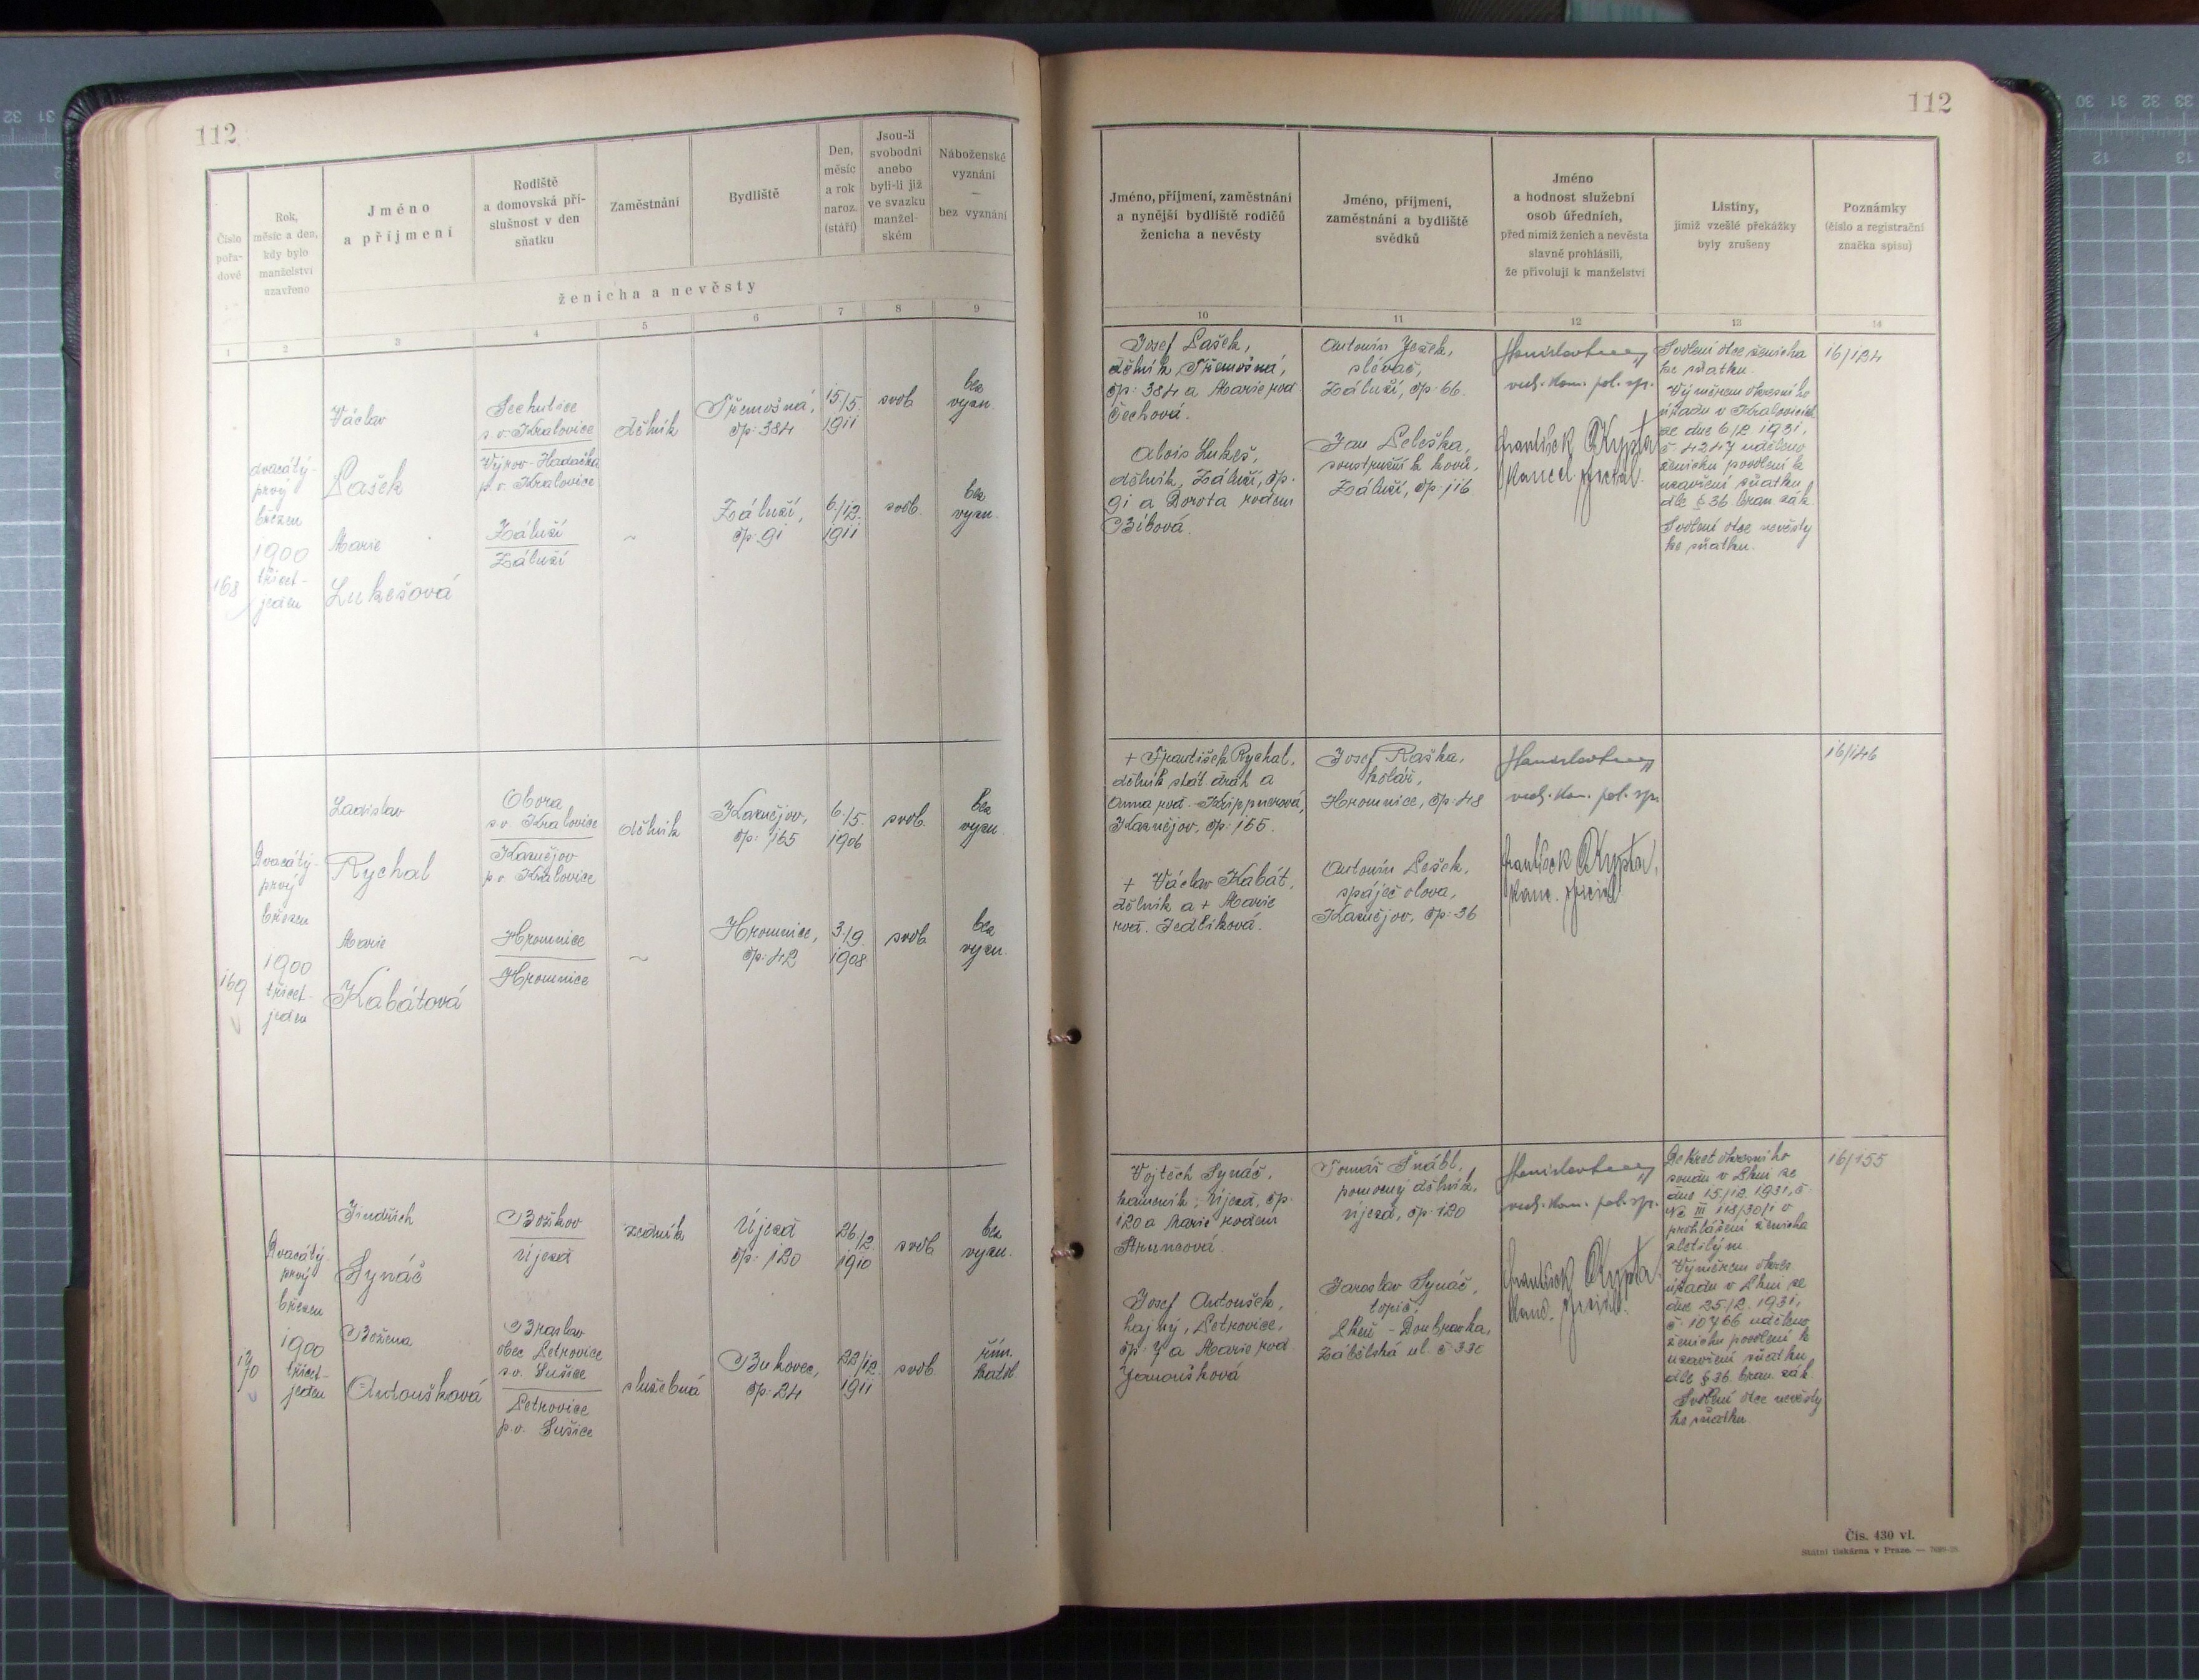 112
Číslo
pořa-
dové
Rok,
měsíc a den,
kdy bylo
manželství
uzavřeno
Jméno
a příjmení
Rodiště
a domovská pří-
slušnost v den
sňatku
Zaměstnání
Bydliště
Den,
měsíc
a rok
naroz.
(stáří)
Jsou-li
svobodni
anebo
byli-li již
ve svazku
manžel-
ském
Náboženské
vyznání
—
bez vyznání
ženicha a nevěsty
1
2
3
4
5
6
7
8
9
168
dvacátý-
prvý
březen
1900
třicet-
jeden
Václav
Pašek
Marie
Lukešová
Sechutice
s. o. Kralovice
Výrov-Hadačka
p. o. Kralovice
Záluží
Záluží
dělník
~
Třemošná,
čp. 384
Záluží,
čp. 91
15/5.
1911
6/12.
1911
svob.
svob.
bez
vyzn.
bez
vyzn.
169
Dvacátý-
prvý
březen
1900
třicet-
jeden
Ladislav
Rychal
Marie
Kabátová
Obora
s. o. Kralovice
Kaznějov
p. o. Kralovice
Hromnice
Hromnice
dělník
~
Kaznějov,
čp. 165
Hromnice,
čp. 42
6/5.
1906
3/9.
1908
svob.
svob.
bez
vyzn.
bez
vyzn.
170
Dvacátý-
prvý
březen
1900
třicet-
jeden
Jindřich
Synáč
Božena
Antoušková
Božkov
Újezd
Braslav
obec Petrovice
s. o. Sušice
Petrovice
p. o. Sušice
zedník
služebná
Újezd
čp. 120
Bukovec,
čp. 24
26/2.
1910
22/12
1911
svob.
svob.
bez
vyzn.
řím.
katol.
112
Jméno, příjmení, zaměstnání
a nynější bydliště rodičů
ženicha a nevěsty
Jméno, příjmení,
zaměstnání a bydliště
svědků
Jméno
a hodnost služební
osob úředních,
před nimiž ženich a nevěsta
slavně prohlásili,
že přivolují k manželství
Listiny,
jimiž vzešlé překážky
byly zrušeny
Poznámky
(číslo a registrační
značka spisu)
10
11
12
13
14
Josef Pašek,
dělník, Třemošná,
čp. 384 a Marie rod.
Čechová.
Alois Lukeš,
dělník, Záluží, čp.
91 a Dorota rodem
Bíbová.
Antonín Ježek,
slévač,
Záluží, čp. 66.
Jan Peleška,
soustružník kovů,
Záluží, čp. 116.
vrch. kom. pol. sp.
František Krypta
kancel. oficiál.
Svolení otce ženicha
ke sňatku.
Výměrem okresního
úřadu v Kralovicích
ze dne 6/2 1931,
č. 4247 uděleno
ženichu povolení k
uzavření sňatku
dle § 36 bran. zák.
Svolení otce nevěsty
ke sňatku.
16/124
+ František Rychal,
dělník stát. drah a
Anna roz. Krippnerová,
Kaznějov, čp. 165.
+ Václav Kabát,
dělník a + Marie
roz. Jedlíková.
Josef Raška,
kolář,
Hromnice, čp. 48
Antonín Pešek,
spáječ olova,
Kaznějov, čp. 36
vrch. kom. pol. sp.
František Krypta,
kanc. oficiál
16/146
Vojtěch Synáč,
kameník, Újezd, čp.
120 a Marie rodem
Strunzová.
Josef Antoušek,
hajný, Petrovice,
čp. 7 a Marie rod.
Janoušková
Tomáš Šnábl,
pomocný dělník,
Újezd, čp. 120
Jaroslav Synáč,
topič,
Plzeň-Doubravka,
Zábělská ul. č. 330
vrch. kom. pol. sp.
František Krypta
kanc. oficiál.
Dekret okresního
soudu v Plzni ze
dne 15/12. 1931, č.
Nc III 118/30/1 o
prohlášení ženicha
zletilým.
Výměrem okres.
úřadu v Plzni ze
dne 25/2. 1931,
č. 10766 uděleno
ženichu povolení k
uzavření sňatku
dle § 36. bran. zák.
Svolení otce nevěsty
ke sňatku
16/155
Čís. 430 vl.
Státní tiskárna v Praze. —